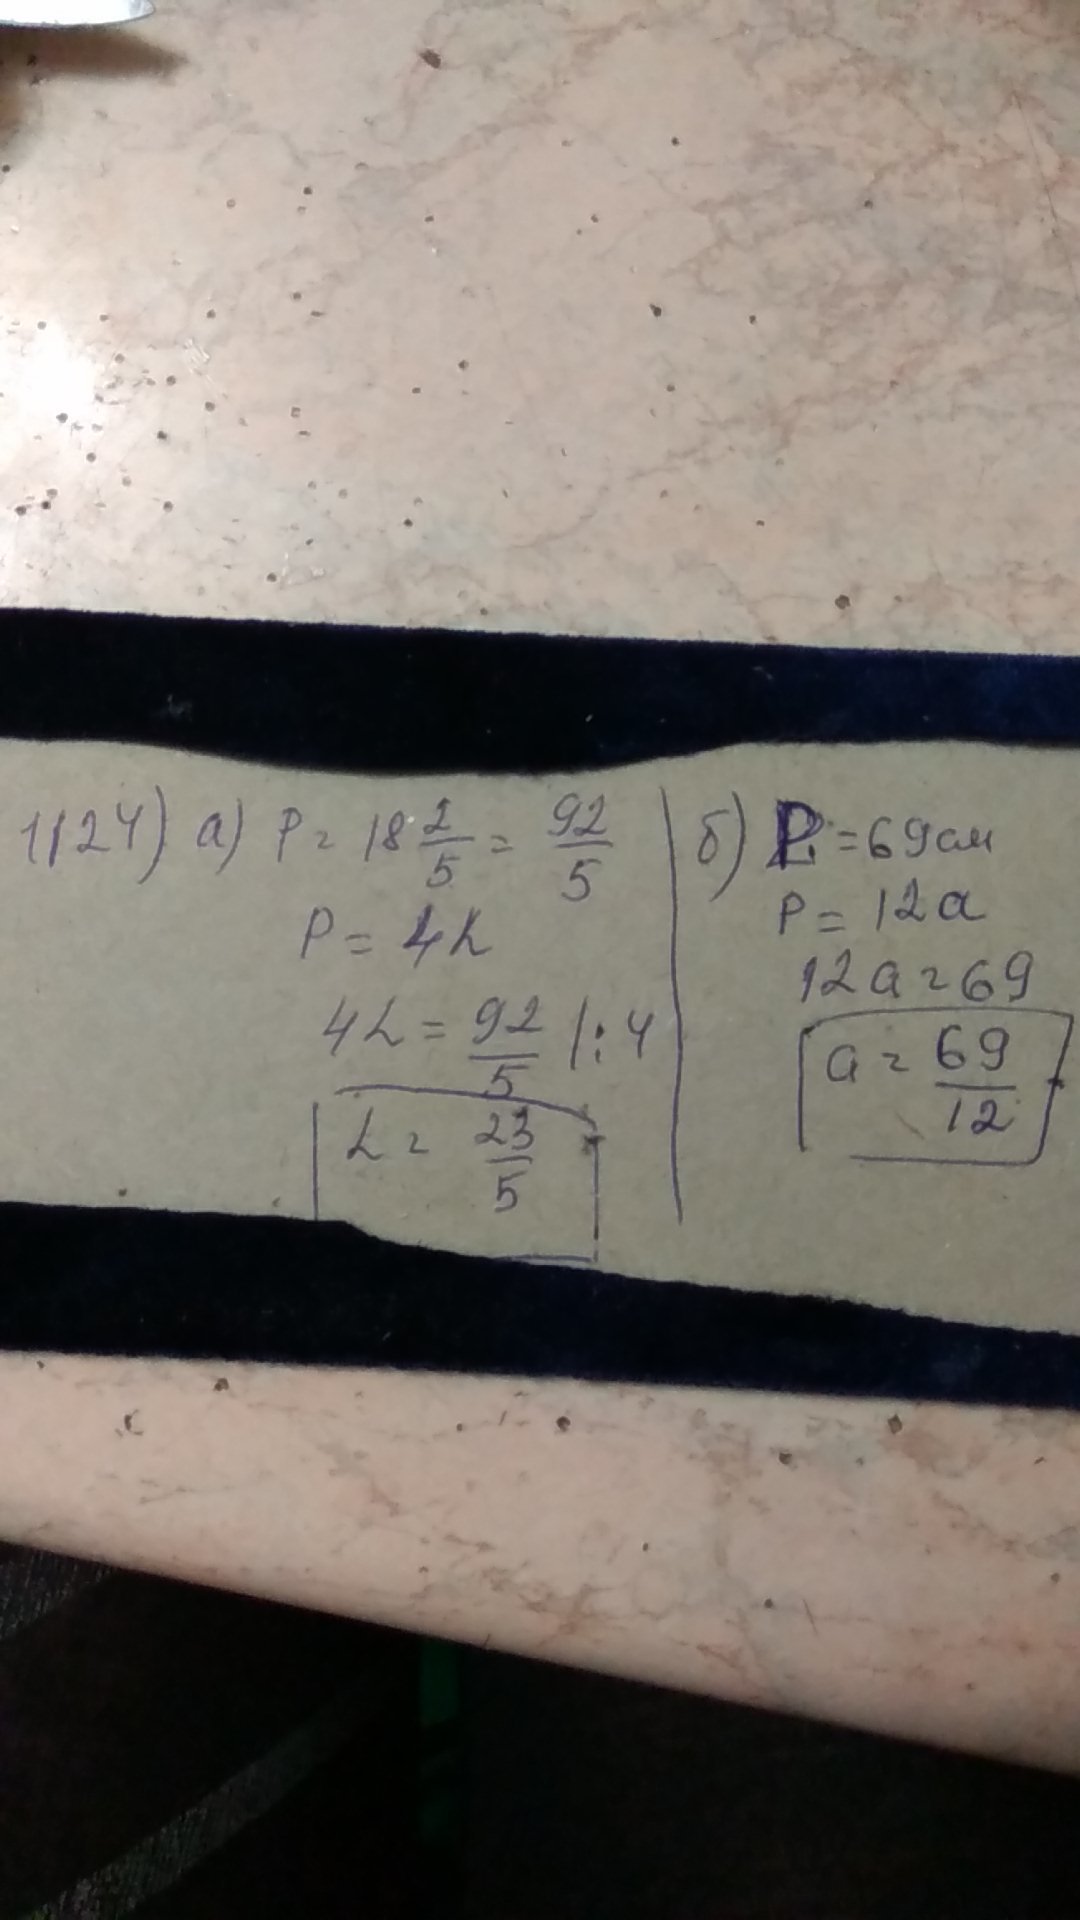 1124) а) P = 18 2/5 = 92/5
P = 4L
4L = 92/5 |:4
L = 23/5
б) P = 69см
P = 12a
12a = 69
a = 69/12